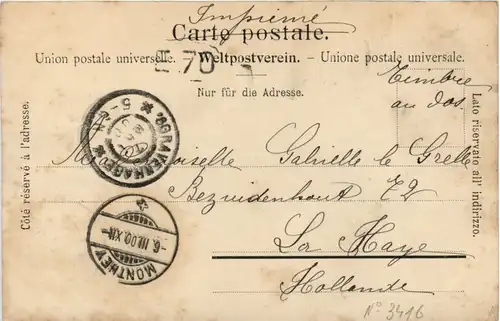 Imprimé
Carte postale.
Union postale universelle. - Weltpostverein. - Unione postale universale.
E.70
Nur für die Adresse.
Timbre
au dos
Côté réservé à l'adresse.
Lato riservato all' indirizzo.
'SGRAVENHAGE
Mademoiselle Gabrielle le Grelle
Bezuidenhout 72
La Haye
Hollande
MONTHEY
-6.III.00.XII-
No 3416